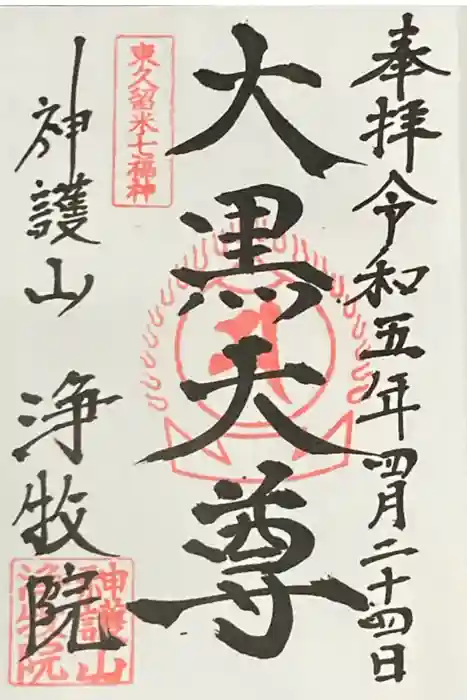 奉拝令和五年四月二十四日
東久留米七福神
大黒天尊
神護山 浄牧院
神護山
浄牧院